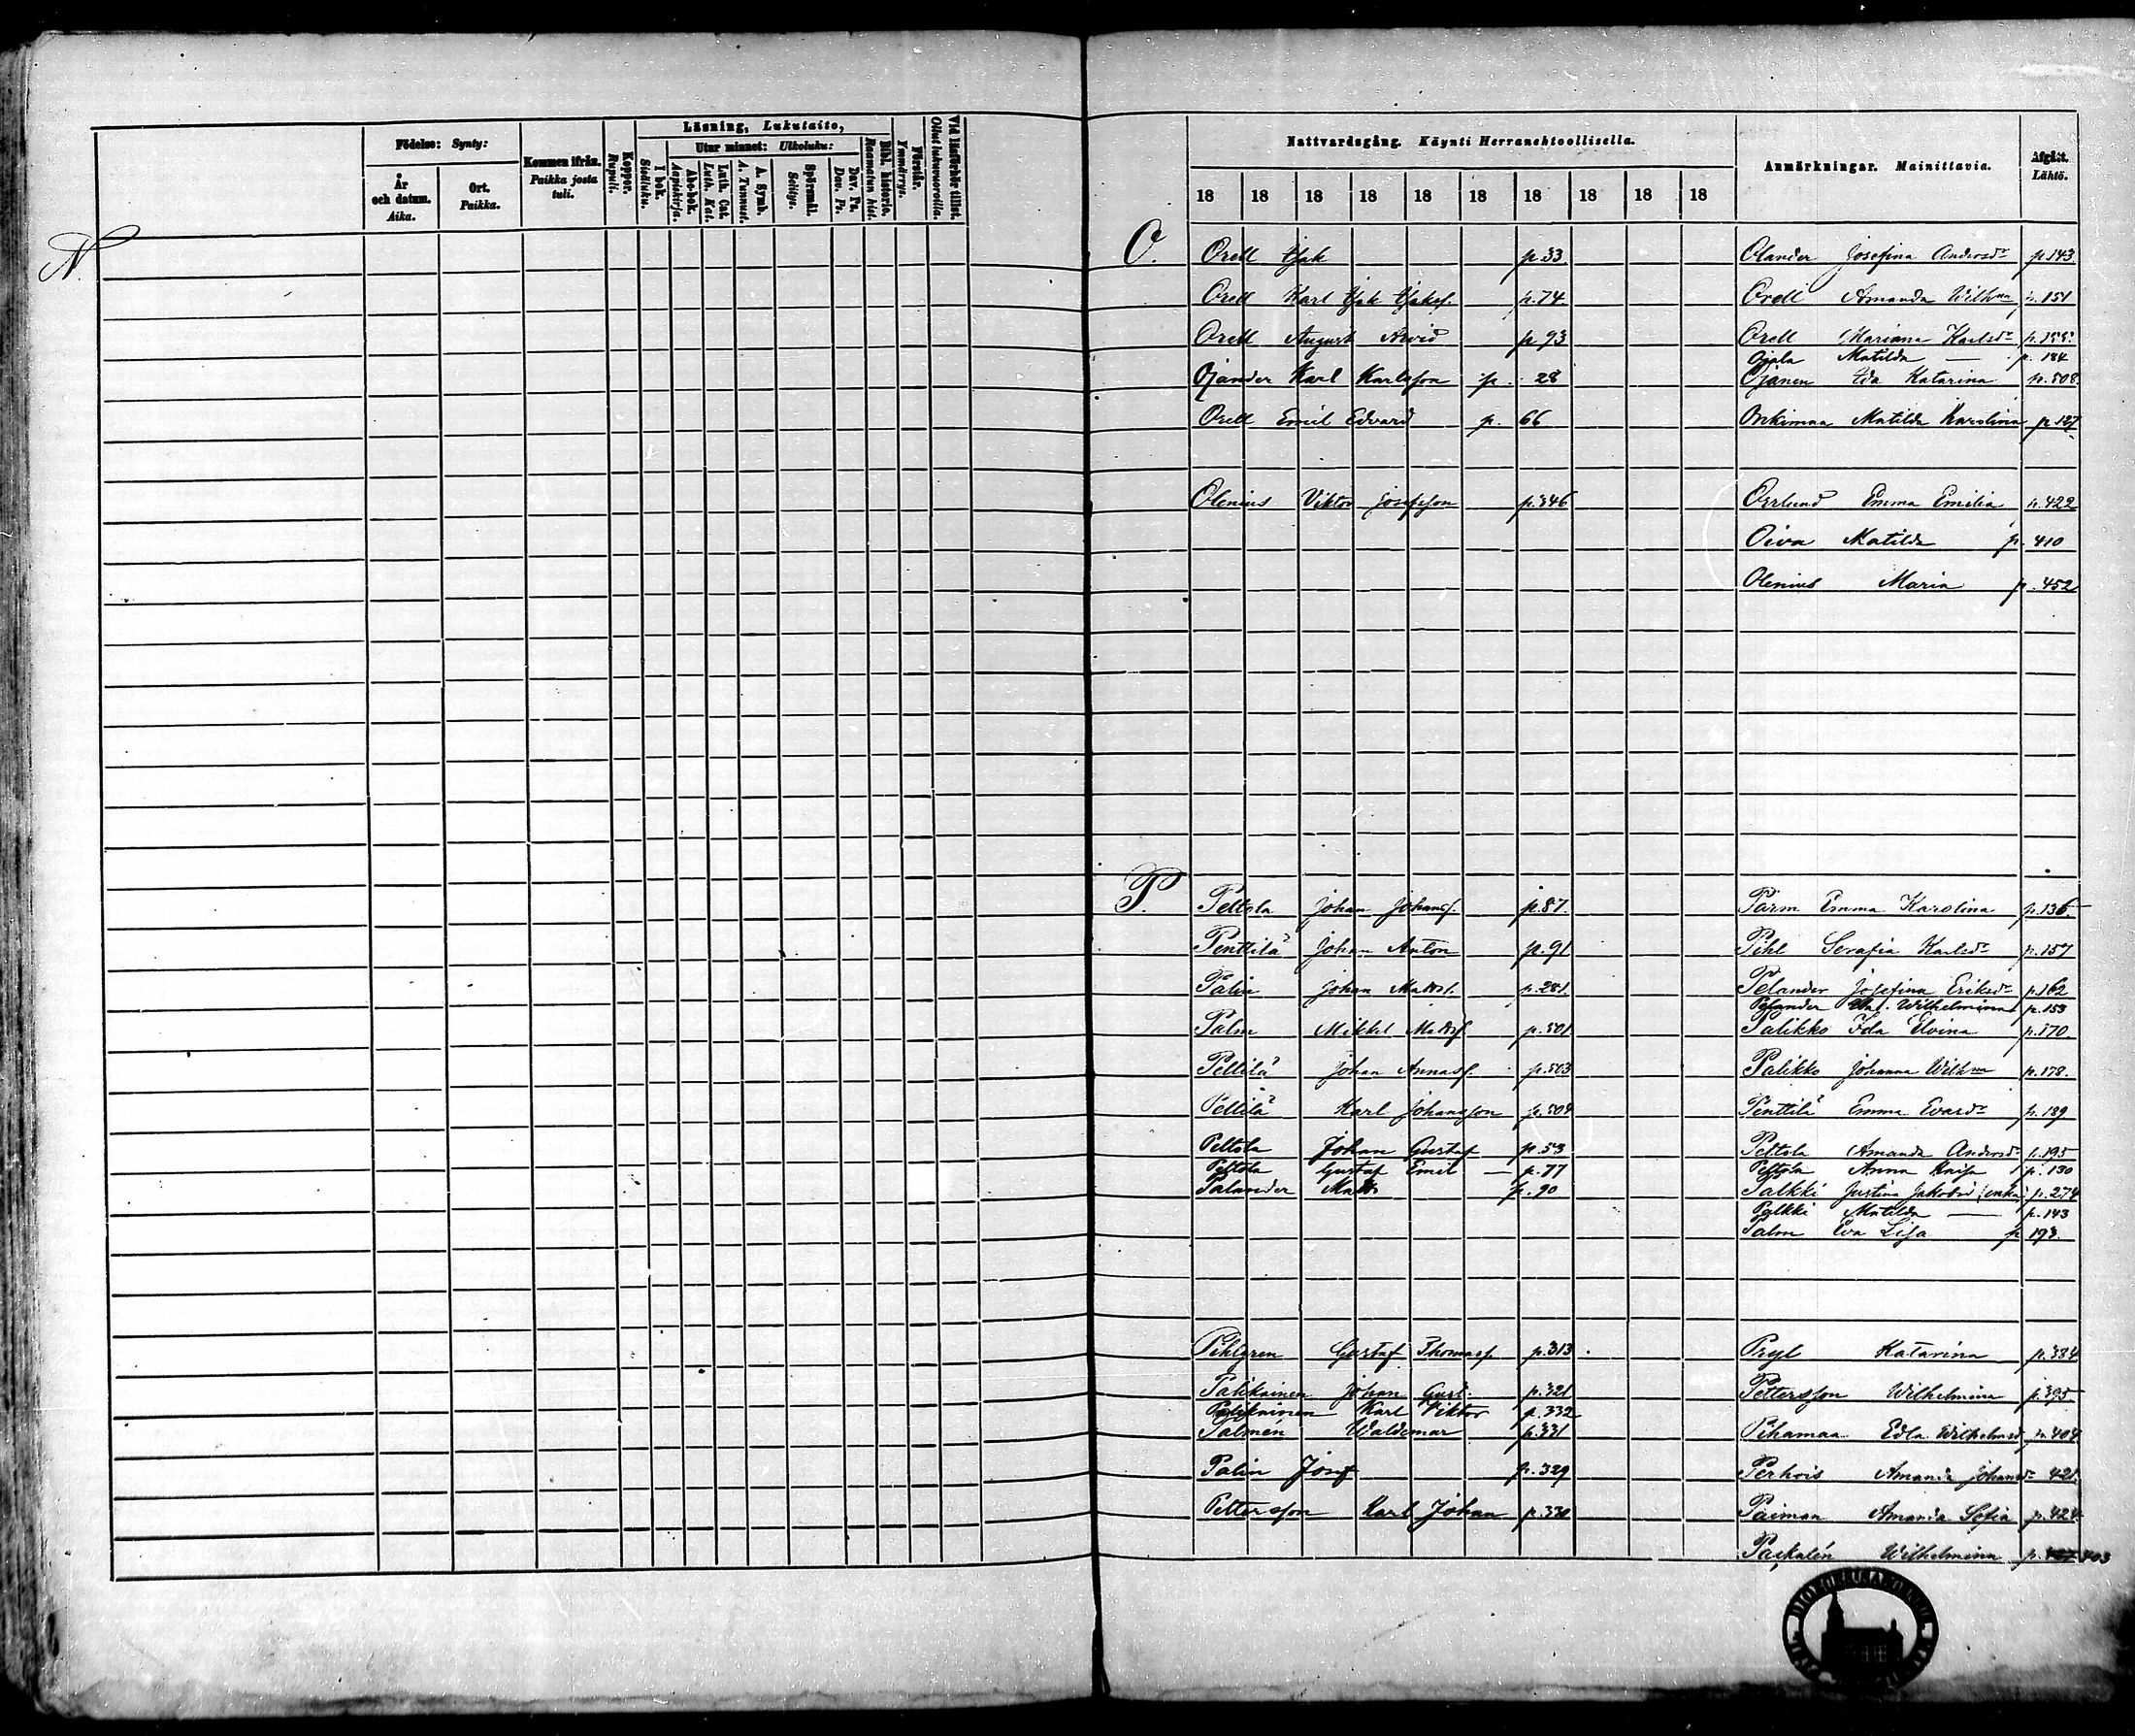 Födelse: Synty:
År och datum. Aika.
Ort. Paikka.
Kommen ifrån. Paikka josta tuli.
Koppor. Rupuli.
Läsning, Lukutaito,
I bok. Sisäluku.
Utur minnet: Ulkoluku:
Abc-bok. Aapiskirja.
Luth. Cat. Luth. Kat.
A. Symb. A. Tunnust.
Spörsmål. Selitys.
Dav. Ps. Dav. Ps.
Bibl. historie. Raamatun hist.
Förstår. Ymmärrys.
Vid läsförhör tillst. Ollut lukuvuoroilla.
N.
Nattvardsgång. Käynti Herranehtoollisella.
18 18 18 18 18 18 18 18 18 18
Anmärkningar. Mainittavia.
Afgått. Lähtö.
O.
Orell Isak p. 33. Olander Josefina Andersdr p. 143
Orell Karl Isak Isakss. p. 74 Orell Amanda Wilhna p. 151
Orell August Arvid p. 93 Orell Mariana Karlsdr
Ojala Matilda — p. 184
Ojander Karl Karlsson p. 28 Ojanen Ida Katarina p. 508.
Orell Emil Edvard p. 66 Onkimaa Matilda Karolina p. 127
Olenius Viktor Josefsson p. 346 Orrlund Emma Emilia p. 422
Oiva Matilda p. 410
Olenius Maria p. 452
P.
Peltola Johan Johanss. p. 87. Pärm Emma Karolina p. 136
Penttilä Johan Anton p. 91 Pihl Serafia Karlsdr p. 157
Palin Johan Mattss. p. 281. Pelander Josefina Eriksdr p. 162
Pelander Wilhelmina p. 153
Palm Mikkel Mattss. p. 501 Palikko Ida Elvina p. 170.
Peltilä Johan Annass. p. 503 Palikko Johanna Wilhna p. 178.
Peltilä Karl Johansson p. 504 Penttilä Emma Evardr p. 189
Peltola Johan Gustaf p. 53 Peltola Amanda Andersdr p. 195
Peltola Gustaf Emil — p. 77 Peltola Anna Kaisa p. 130
Palander Matts p. 90 Palkki Justina Jakobsd (enka) p. 274
Palkki Matilda — p. 143
Palm Eva Lisa p 193.
Pihlgren Gustaf Thomass. p. 313. Pryl Katarina p. 384
Palikainen Johan Gust. p. 321 Pettersson Wilhelmina p. 395
Palikainen Karl Viktor p. 332
Palmén Waldemar p. 331 Pihamaa Edla Wilhelmsd p. 404
Palin Josef p. 329 Perhois Amanda Johansdr 421.
Pettersson Karl Johan p. 330 Paiman Amanda Sofia p. 424
Paskalén Wilhelmina p. 403